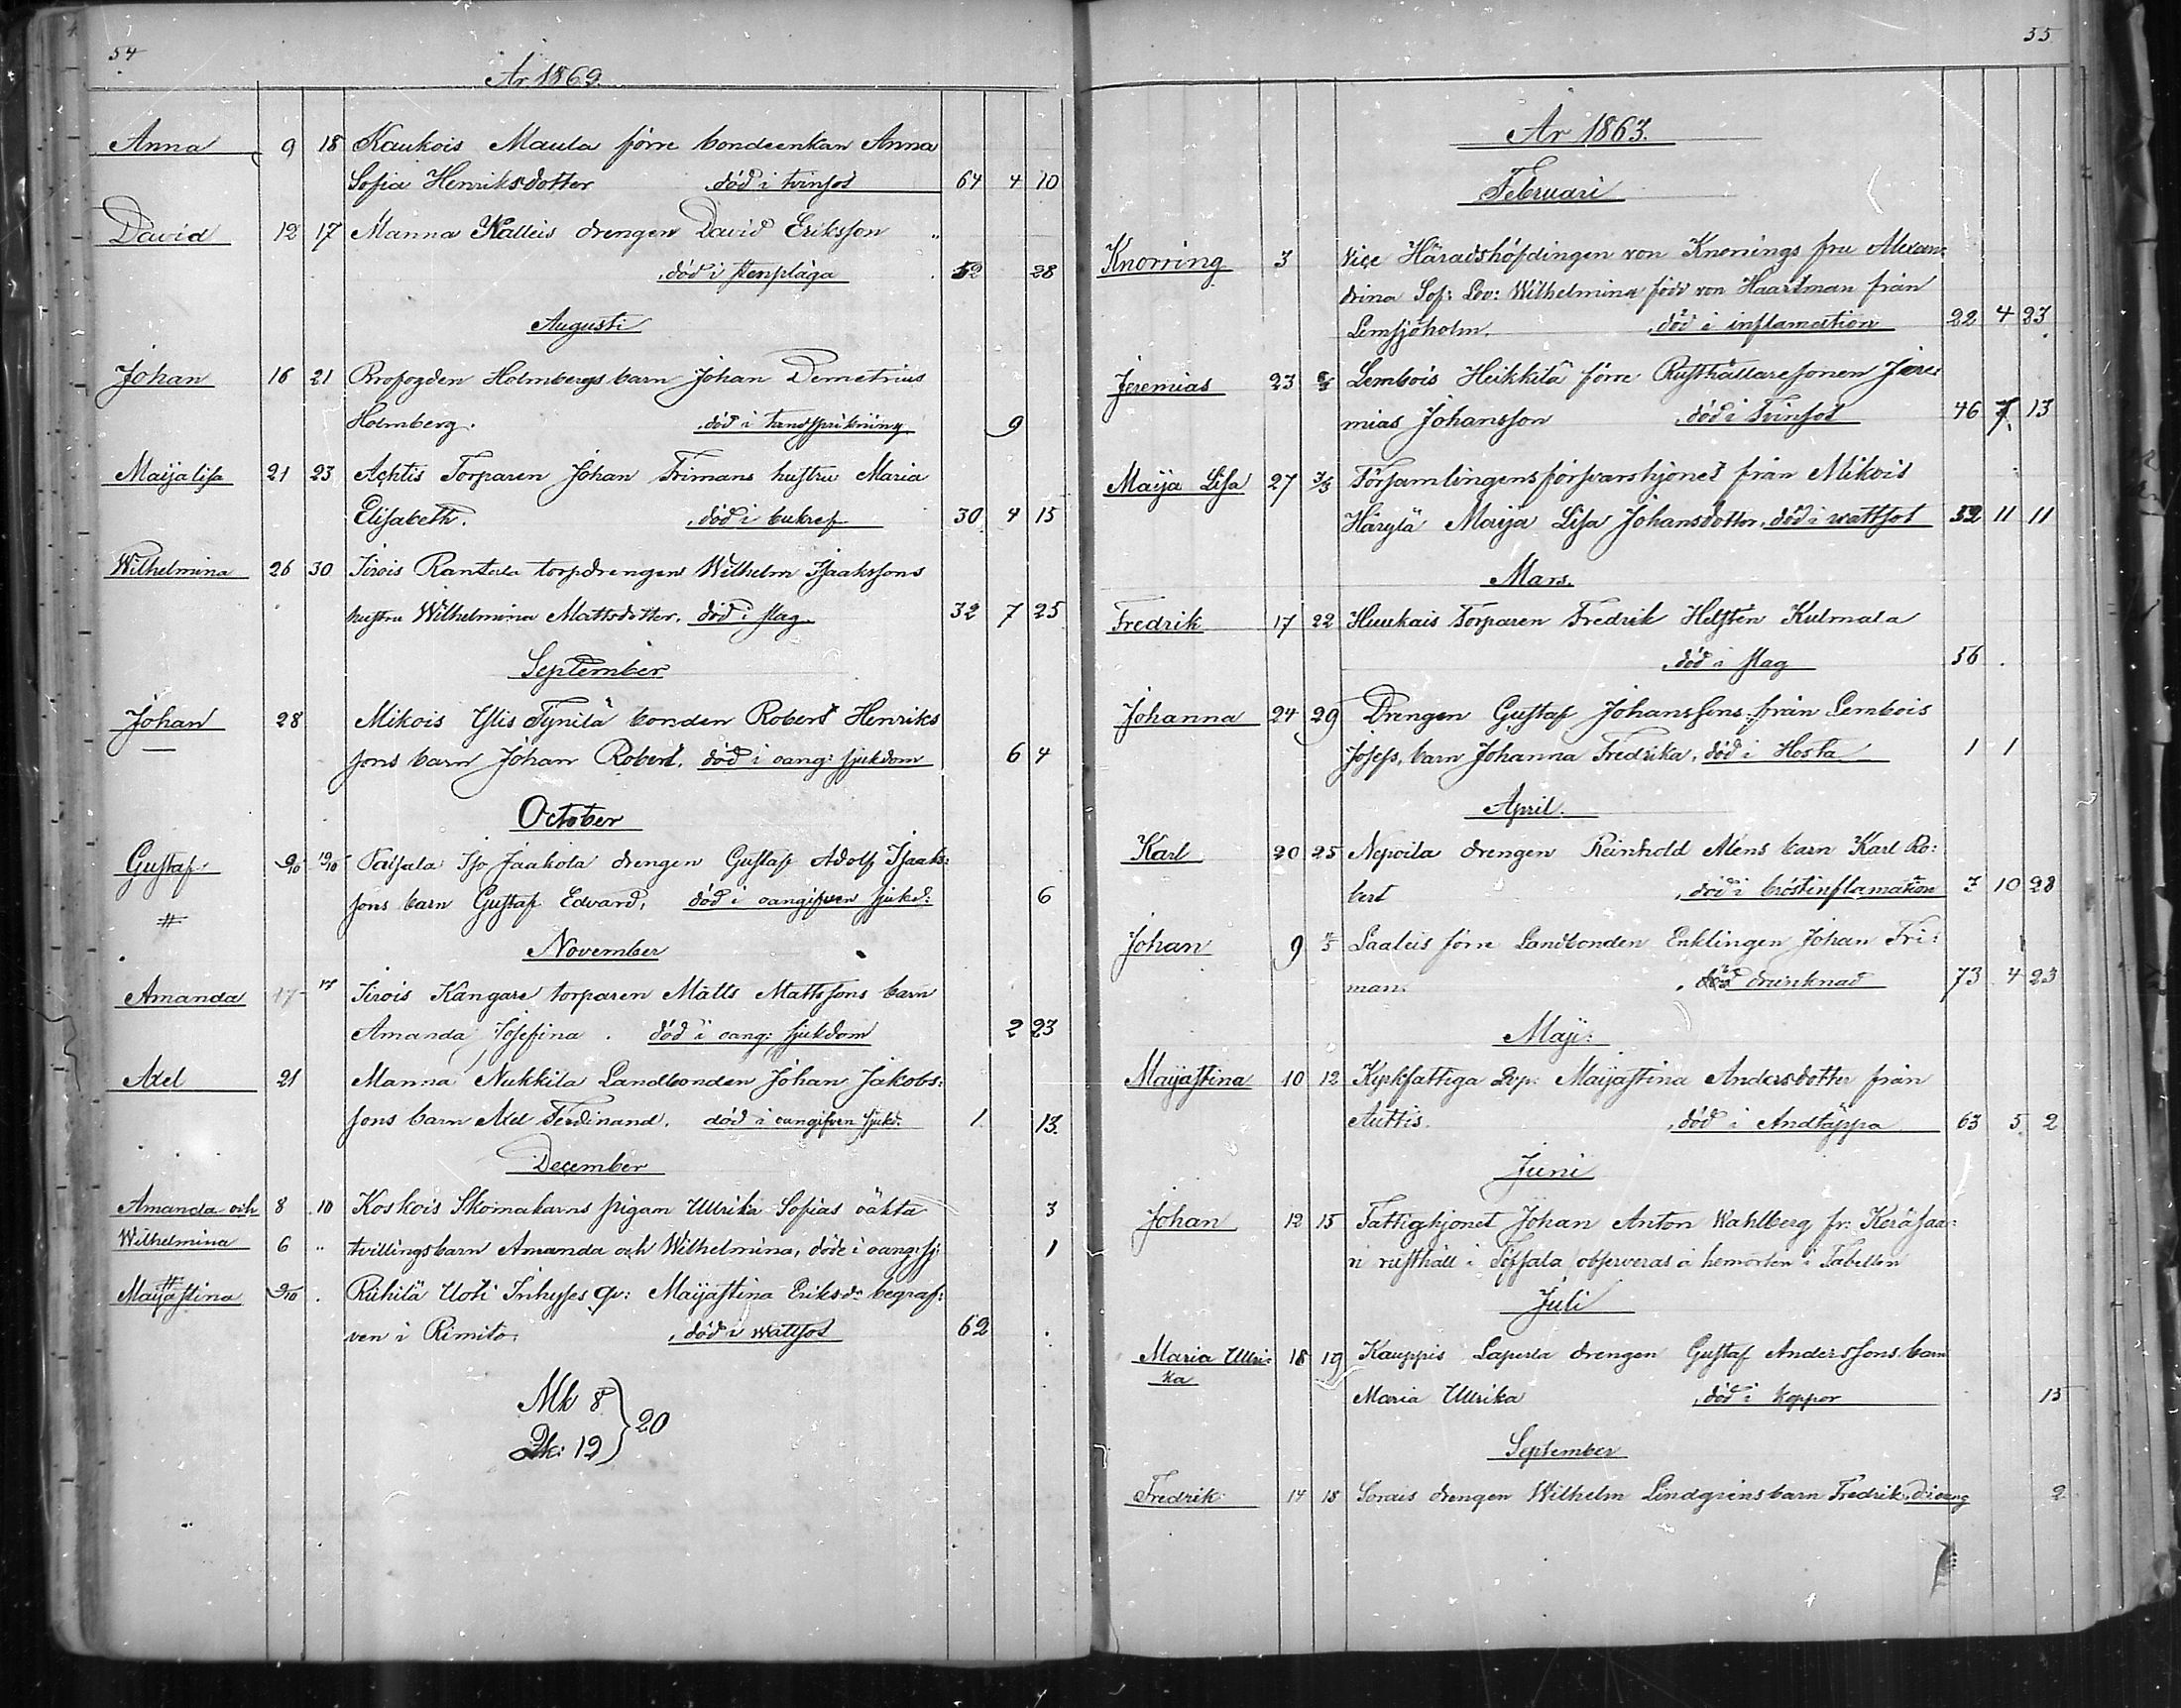 54
År 1862.
Anna 9 18 Kaukois Maula förre bondeenkan Anna
Sofia Henriksdotter död i tvinsot 64 4 10
David 12 17 Manna Kalleis drengen David Eriksson
död i stenplåga 52 28
Augusti
Johan 16 21 Brofogden Holmbergs barn Johan Demetrius
Holmberg. död i tandsprikning 9
Maijalisa 21 23 Achtis Torparen Johan Frimans hustru Maria
Elisabeth. död i bukref 30 4 15
Wilhelmina 26 30 Tirois Rantala torpdrengen Wilhelm Isaakssons
hustru Wilhelmina Mattsdotter. död i slag 32 7 25
September
Johan 28 Mikois Ylis Tynilä bonden Robert Henriks
sons barn Johan Robert. död i oang: sjukdom 6 4
October
Gustaf 9/10 19/10 Taipala Iso Jaakola drengen Gustaf Adolf Isaaks:
# sons barn Gustaf Edvard, död i oangifven sjukd: 6
November
Amanda 17 17 Tirois Kangare torparen Matts Mattssons barn
Amanda Josefina. död i oang: sjukdom 2 23
Axel 21 Manna Nukkila Landbonden Johan Jakobs:
sons barn Axel Ferdinand. död i oangifven sjukd. 1. 13.
December
Amanda och 8 10 Koskois Skomakarns pigan Ullrika Sofias oäkta 3
Wilhelmina 6 " tvillingsbarn Amanda och Wilhelmina, döde i oang: sj: 1
#
Maijastina 9/10 Ruhilä Uoti Inhyses qv: Maijastina Eriksdr begraf:
ven i Rimito, död i wattsot 62
Mk 8
Qk: 12 } 20
55
År 1863.
Februari
Knorring 3 Vice Häradshöfdingen von Knorrings fru Alexan:
drina Sof: Lov: Wilhelmina född von Haartman från
Lemsjöholm. död i inflamation 22 4 23
Jeremias 23 Lembois Heikkilä förre Rusthållaresonen Jere
mias Johansson död i Tvinsot 46 7 13
Maija Lisa 27 3/3 Församlingens försvarshjonet från Mikois
Härylä Maija Lisa Johansdotter, död i wattsot 52 11 11
Mars.
Fredrik 17 22 Huukais Torparen Fredrik Helstén Kulmala
död i slag 56
Johanna 24 29 Drengen Gustaf Johanssons från Lembois
Josefs, barn Johanna Fredrika, död i Hosta 1 1
April.
Karl 20 25 Nepoila drengen Reinhold Alens barn Karl Ro:
bert död i bröstinflamation 7 10 28
Johan 9 Laaleis förre Landbonden Enklingen Johan Fri:
man. död drunknad 73 4 23
Maji:
Maijastina 10 12 Kyrkfattiga Maijastina Andersdotter från
Auttis. död i Andtäppa 63 5 2
Juni
Johan 12 15 Fattighjonet Johan Anton Wahlberg fr: Keräsaa:
ri rusthåll i Töfsala observeras å hemorten i Tabellen
Juli
Maria Ullri: 18 19 Kauppis Laperla drengen Gustaf Anderssons barn
ka Maria Ullrika död i koppor 15
September
Fredrik 14 18 Sorais drengen Wilhelm Lindgrens barn Fredrik, d: i oang 2